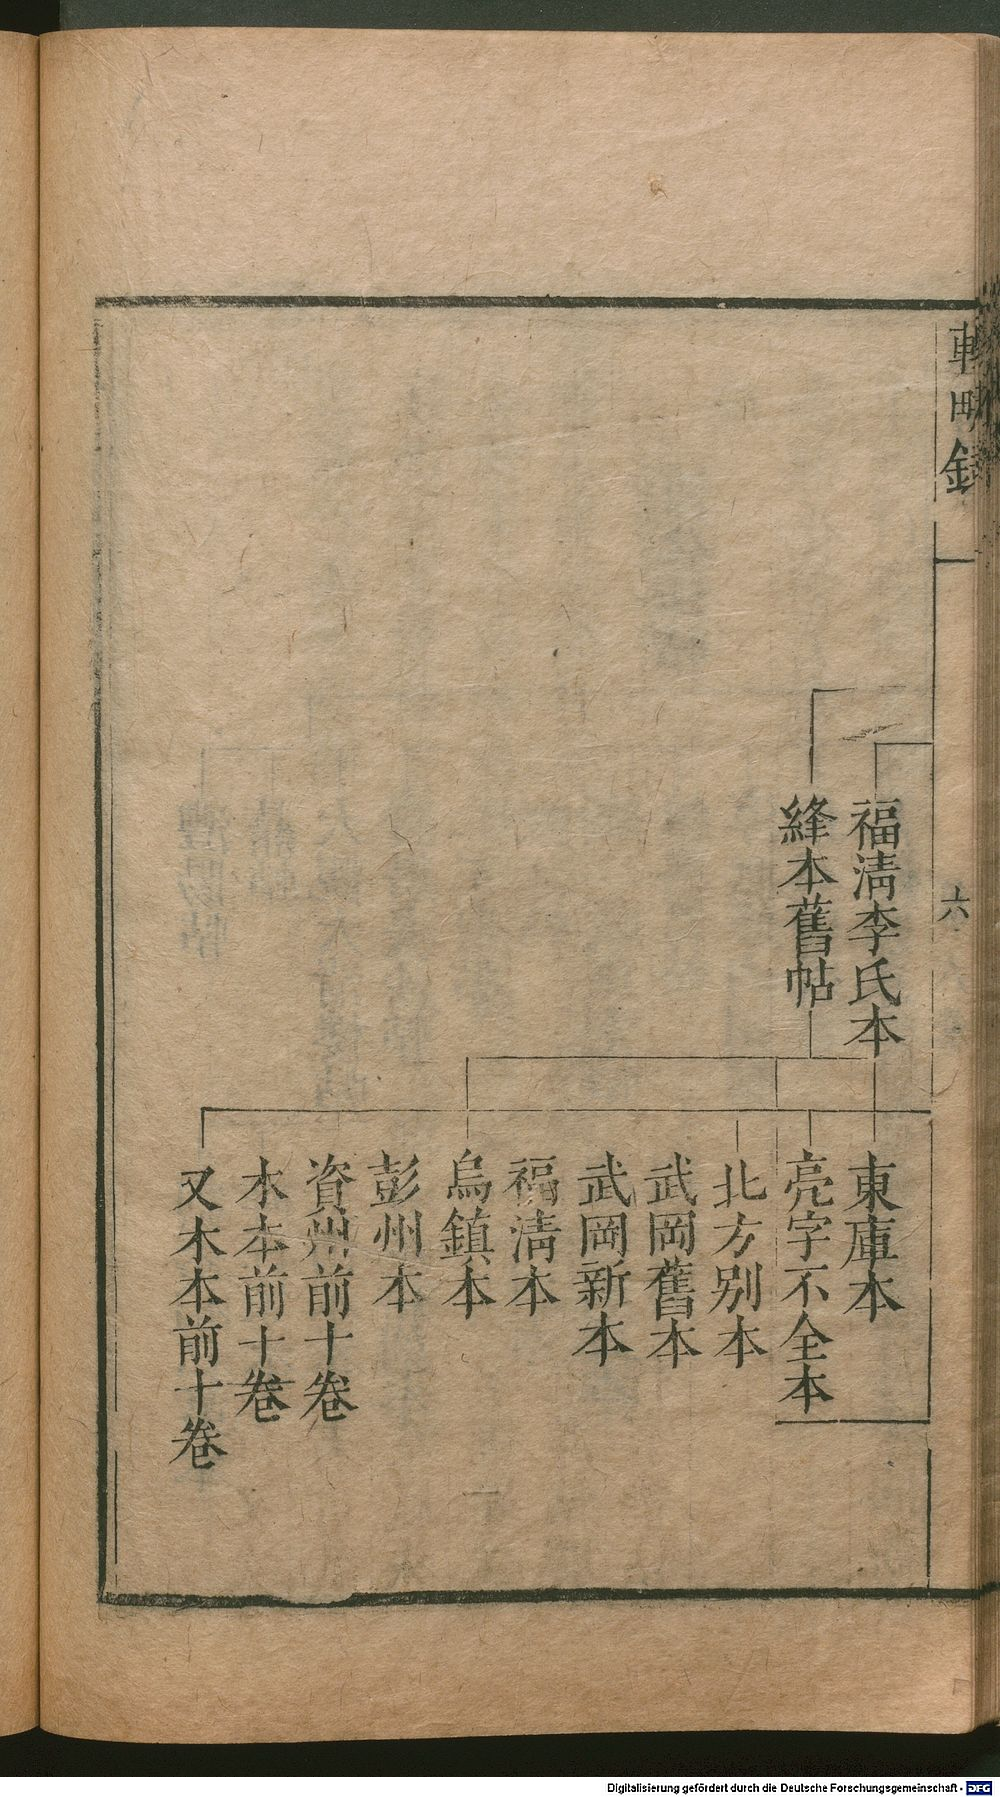 耕錄
六
福淸李氏本
絳本舊帖
東庫本
亮字不全本
北方別本
武岡舊本
武岡新本
福淸本
烏鎮本
彭州本
資州前十卷
木本前十卷
又木本前十卷
Digitalisierung gefördert durch die Deutsche Forschungsgemeinschaft - DFG